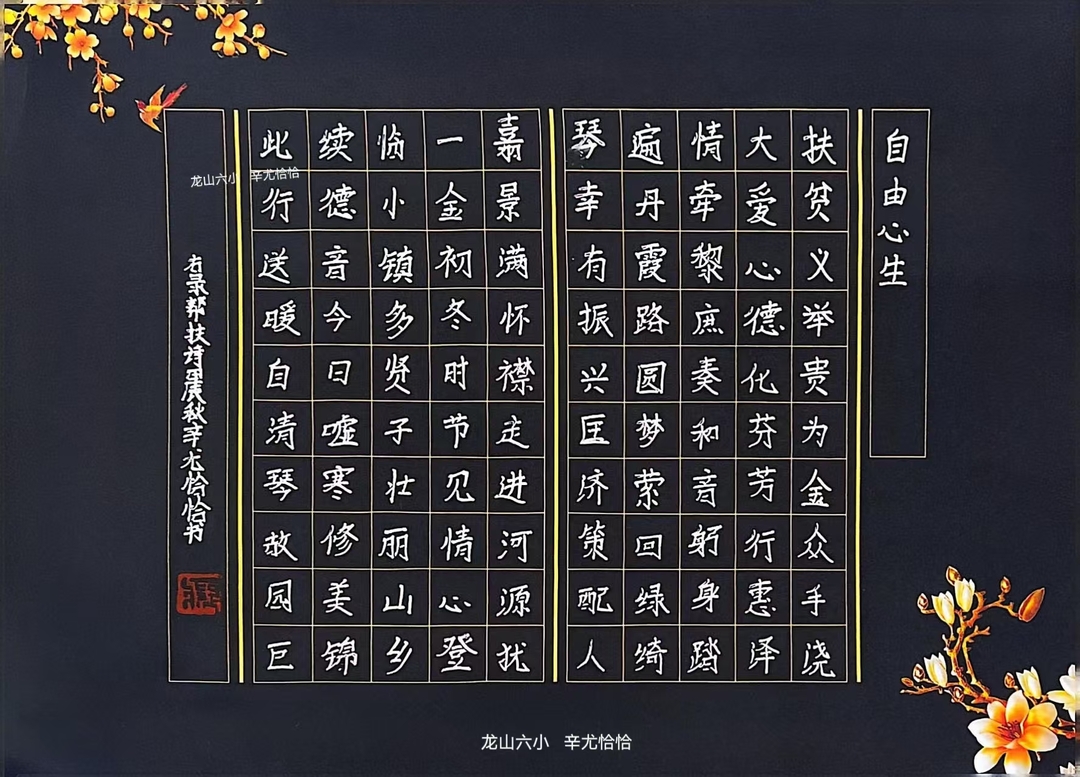 自由心生
扶贫义举贵为金众手浇
大爱心德化芬芳行惠泽
情牵黎庶奏和音躬身踏
遍丹霞路圆梦萦回绿绮
琴幸有振兴匡济策配人
嘉景满怀襟走进河源扰
一金初冬时节见情心登
临小镇多贤子壮丽山乡
续德音今日嘘寒修美锦
此行送暖自清琴故园巨
右录帮扶诗 庚秋辛尤恰恰书
龙山六小 辛尤恰恰
龙山六小 辛尤恰恰